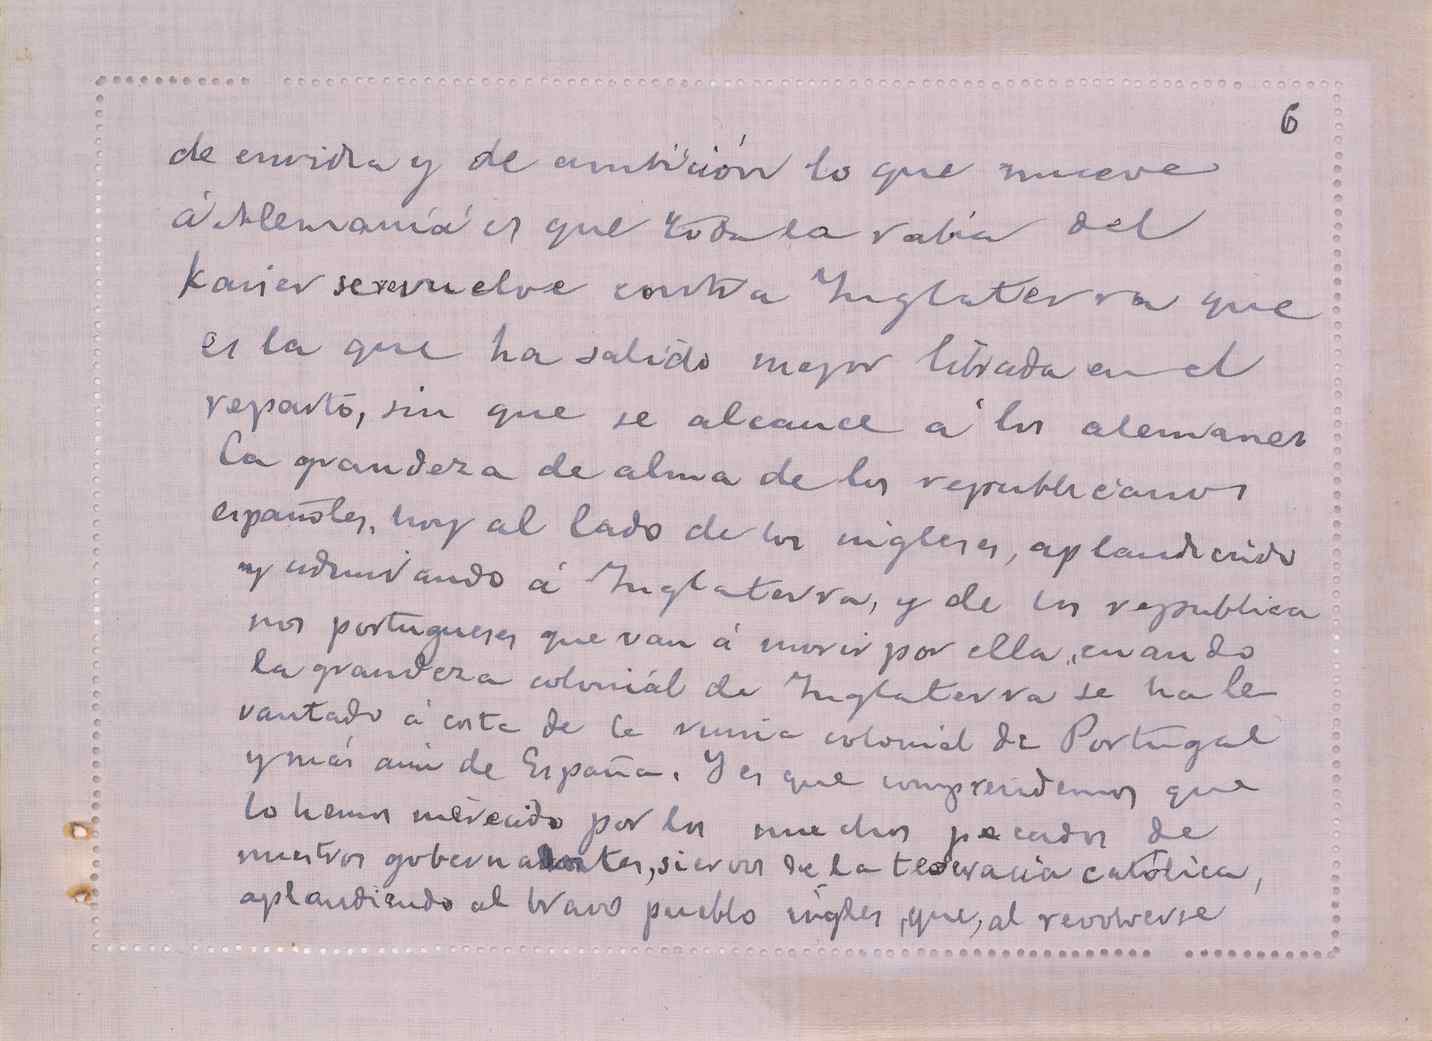 6
de envidia y de ambición lo que mueve
á Alemaniá es que toda la rabia del
Kaiser se revuelve contra Inglaterra que
es la que ha salido mejor librada en el
reparto, sin que se alcance á los alemanes
la grandeza de alma de los republicanos
españoles, hoy al lado de los ingleses, aplaudiendo
y admirando á Inglaterra, y de los republica
nos portugueses que van á morir por ella, cuando
la grandeza colonial de Inglaterra se ha le
vantado á costa de la ruina colonial de Portugal
y más aún de España. Y es que comprendemos que
lo hemos merecido por los muchos pecados de
nuestros gobernantes, siervos de la teocracia católica,
aplaudiendo al bravo pueblo inglés, que, al revolverse